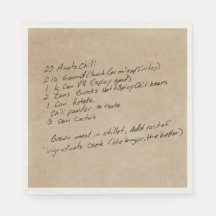 20 Minute Chili
2 lb Ground Chuck (or mix w/ Turkey)
1 ½ Can V8 (Spicy good)
2 Cans Brooks Hot & Spicy Chili beans
1 Can Rotelle
Chili powder to taste
½ can Cactus
Brown meat in skillet, Add rest of
ingredients, cook (the longer, the better)